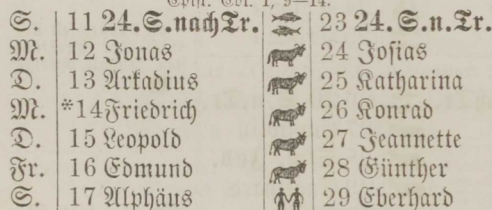 Epist. Col. 1, 9–14.
S. 11 24. S. nach Tr. 23 24. S. n. Tr.
M. 12 Jonas 24 Josias
D. 13 Arkadius 25 Katharina
M. *14 Friedrich 26 Konrad
D. 15 Leopold 27 Jeannette
Fr. 16 Edmund 28 Günther
S. 17 Alphäus 29 Eberhard